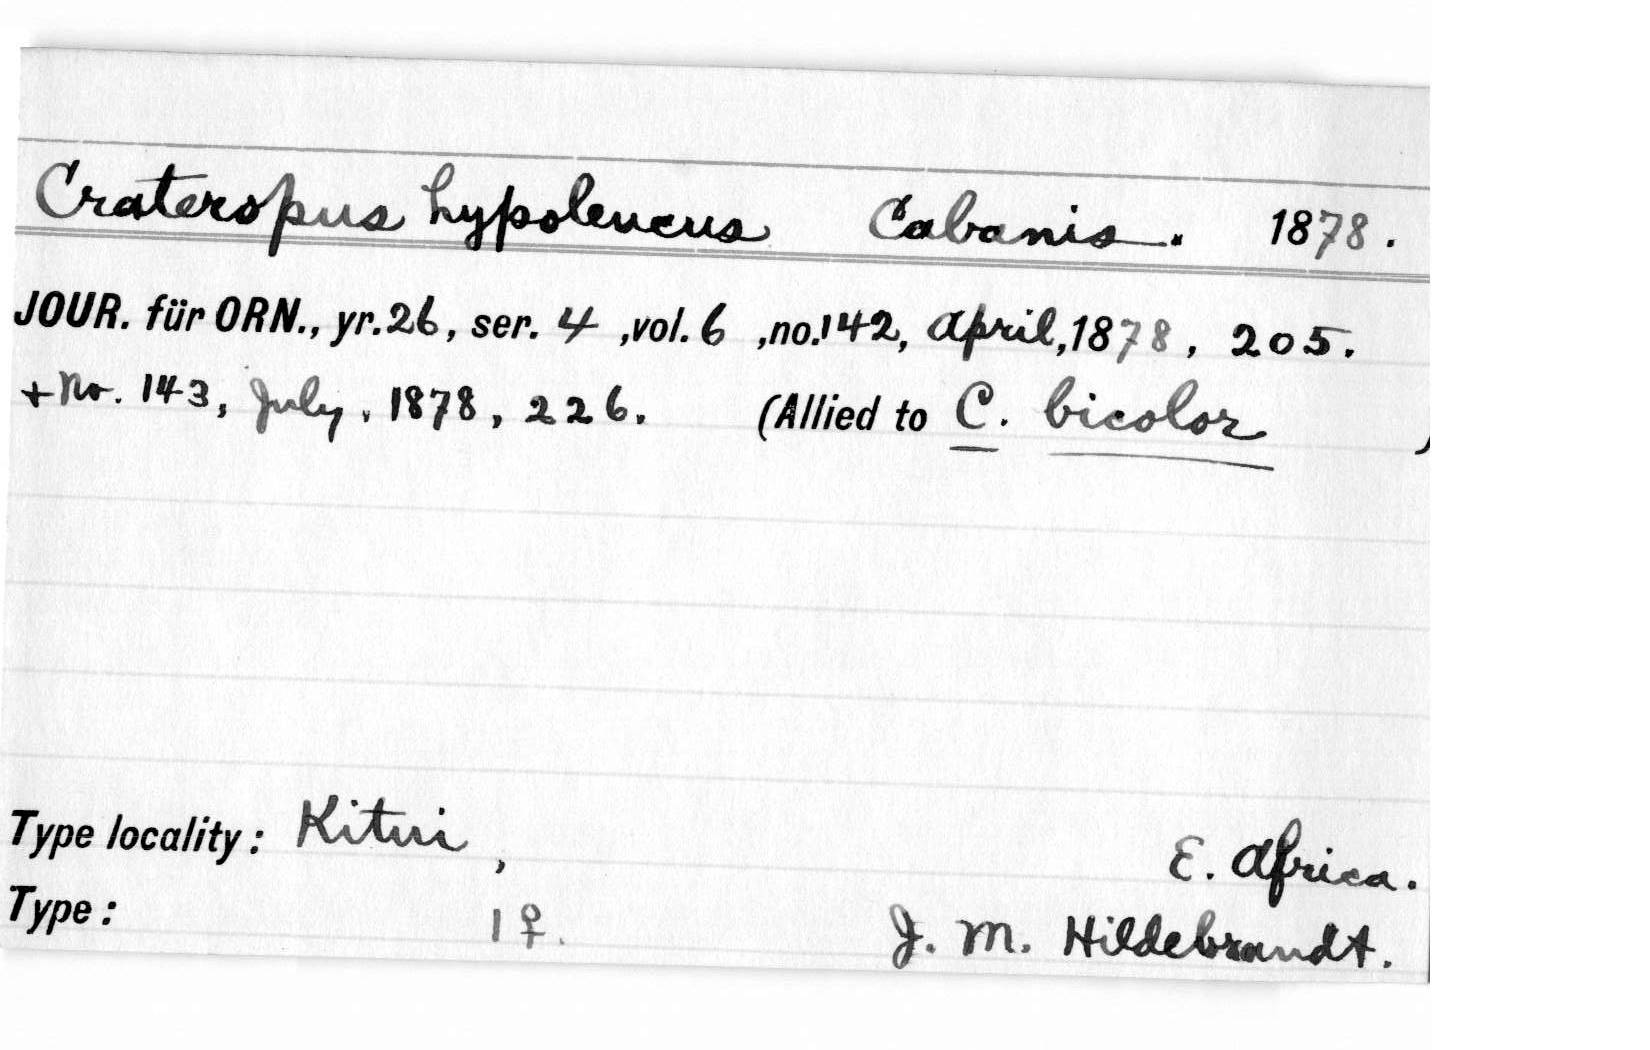 Crateropus hypoleucus Cabanis. 1878.
JOUR. für ORN., yr. 26, ser. 4, vol. 6, no. 142, April, 1878, 205.
+ No. 143, July, 1878, 226. (Allied to C. bicolor )
Type locality: Kitui, E. Africa.
Type: 1 ♀. J. M. Hildebrandt.